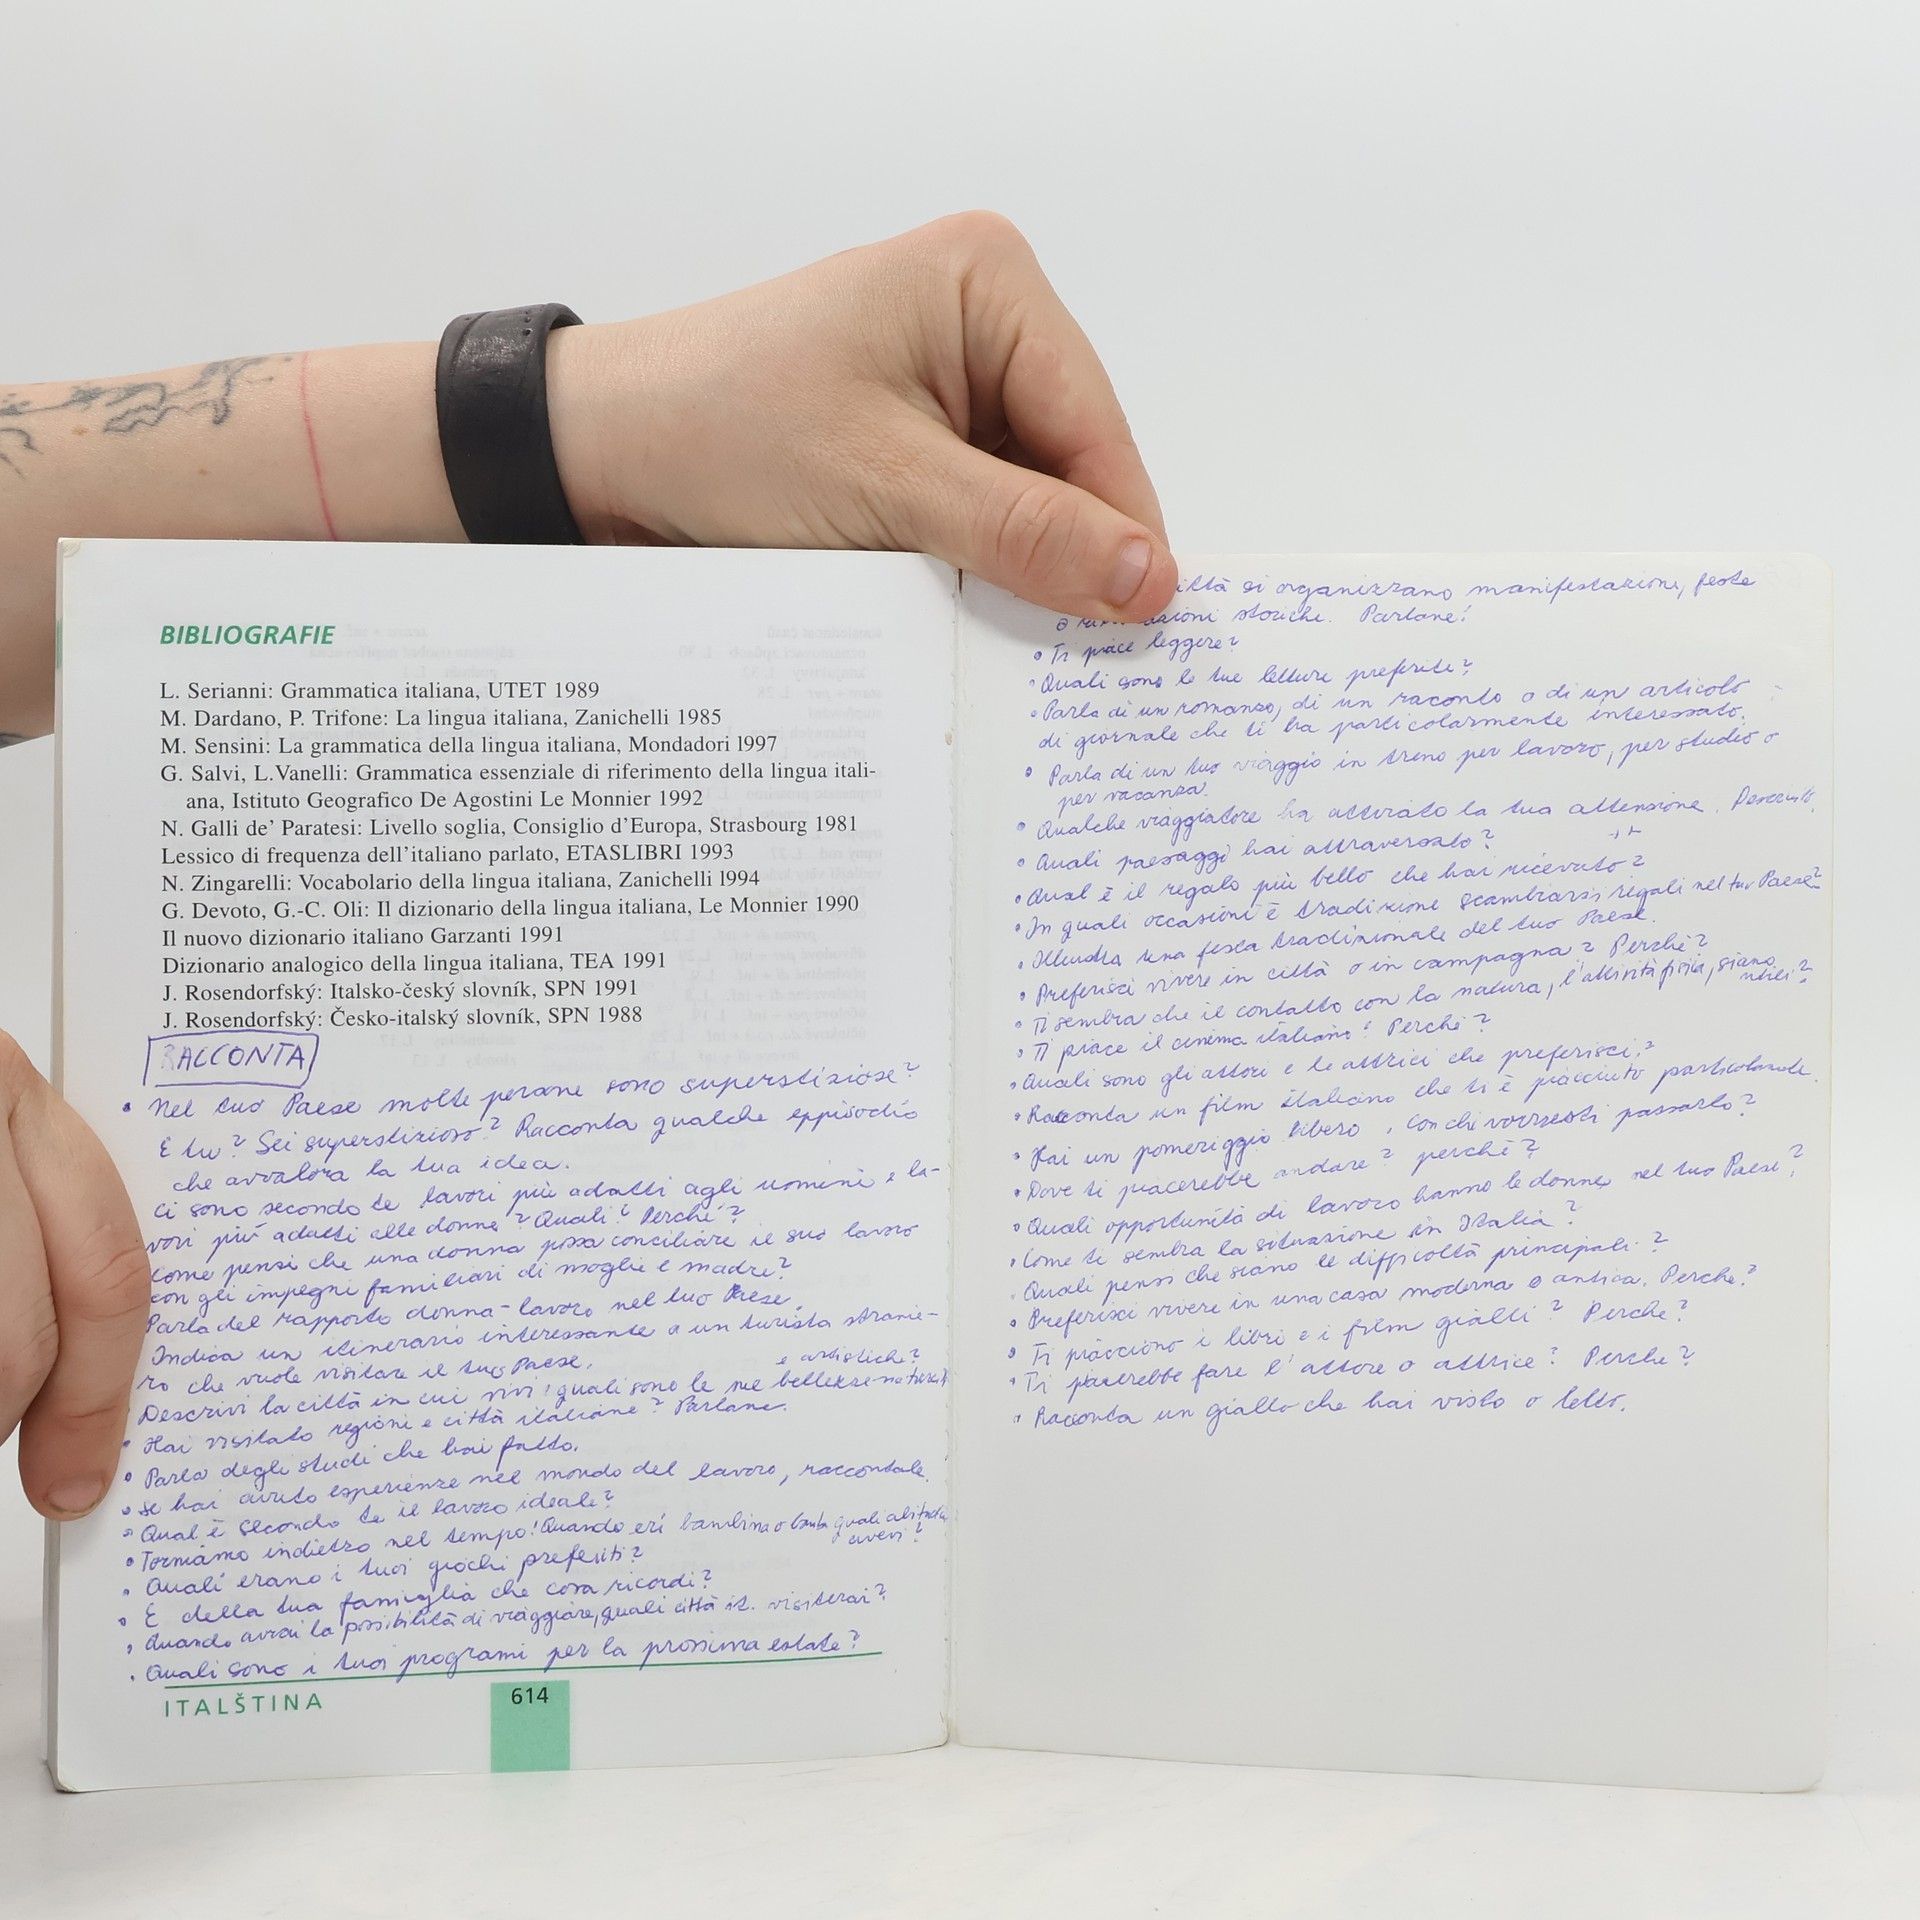 BIBLIOGRAFIE
L. Serianni: Grammatica italiana, UTET 1989
M. Dardano, P. Trifone: La lingua italiana, Zanichelli 1985
M. Sensini: La grammatica della lingua italiana, Mondadori 1997
G. Salvi, L.Vanelli: Grammatica essenziale di riferimento della lingua itali-
ana, Istituto Geografico De Agostini Le Monnier 1992
N. Galli de' Paratesi: Livello soglia, Consiglio d'Europa, Strasbourg 1981
Lessico di frequenza dell'italiano parlato, ETASLIBRI 1993
N. Zingarelli: Vocabolario della lingua italiana, Zanichelli 1994
G. Devoto, G.-C. Oli: Il dizionario della lingua italiana, Le Monnier 1990
Il nuovo dizionario italiano Garzanti 1991
Dizionario analogico della lingua italiana, TEA 1991
J. Rosendorfský: Italsko-český slovník, SPN 1991
J. Rosendorfský: Česko-italský slovník, SPN 1988
RACCONTA
• Nel tuo Paese molte persone sono superstiziose?
E tu? Sei superstizioso? Racconta qualche eppisodio
che avvalora la tua idea.
Ci sono secondo te lavori più adatti agli uomini e la-
vori più adatti alle donne? Quali? Perché?
Come pensi che una donna possa conciliare il suo lavoro
con gli impegni familiari di moglie e madre?
Parla del rapporto donna-lavoro nel tuo Paese.
Indica un itinerario interessante a un turista stranie-
ro che vuole visitare il tuo Paese.
e artistiche?
Descrivi la città in cui vivi! quali sono le sue bellezze
• Hai visitato regioni e città italiane? Parlane.
• Parla degli studi che hai fatto.
• Se hai avuto esperienze nel mondo del lavoro, raccontale.
• Qual è secondo te il lavoro ideale?
• Torniamo indietro nel tempo! Quando eri bambina o quali
avevi?
• Quali erano i tuoi giochi preferiti?
• E della tua famiglia che cosa ricordi?
• Quando avrai la possibilità di viaggiare, quali città it. visiterai?
• Quali sono i tuoi programi per la prossima estate?
ITALŠTINA
614
ittà si organizzano manifestazione, feste
o storiche. Parlane!
• Ti piace leggere?
• Quali sono le tue letture preferite?
• Parla di un romanzo, di un raconto o di un articolo
di giornale che ti ha particolarmente interessato.
• Parla di un tuo viaggio in treno per lavoro, per studio o
per vacanza.
• Qualche viaggiatore ha attirato la tua attenzione.
• Quali paesaggi hai attraversato?
• Qual è il regalo più bello che hai ricevuto?
• In quali occasioni è tradizione scambiarsi regali nel tuo Paese?
• Illustra una festa tradizionale del tuo Paese.
• Preferisci vivere in città o in campagna? Perché?
• Ti sembra che il contatto con la natura, l'attività fisica, siano
utili?
• Ti piace il cinema italiano? Perché?
• Quali sono gli attori e le attrici che preferisci?
• Racconta un film italiano che ti è piacciuto
• Hai un pomeriggio libero, con chi vorresti passarlo?
• Dove ti piacerebbe andare? perché?
• Quali opportunità di lavoro hanno le donne nel tuo Paese?
• Come ti sembra la situazione in Italia?
• Quali pensi che siano le difficoltà principali?
• Preferisci vivere in una casa moderna o antica. Perché?
• Ti piacciono i libri e i film gialli? Perché?
• Ti piacerebbe fare l'attore o attrice? Perché?
• Racconta un giallo che hai visto o letto.